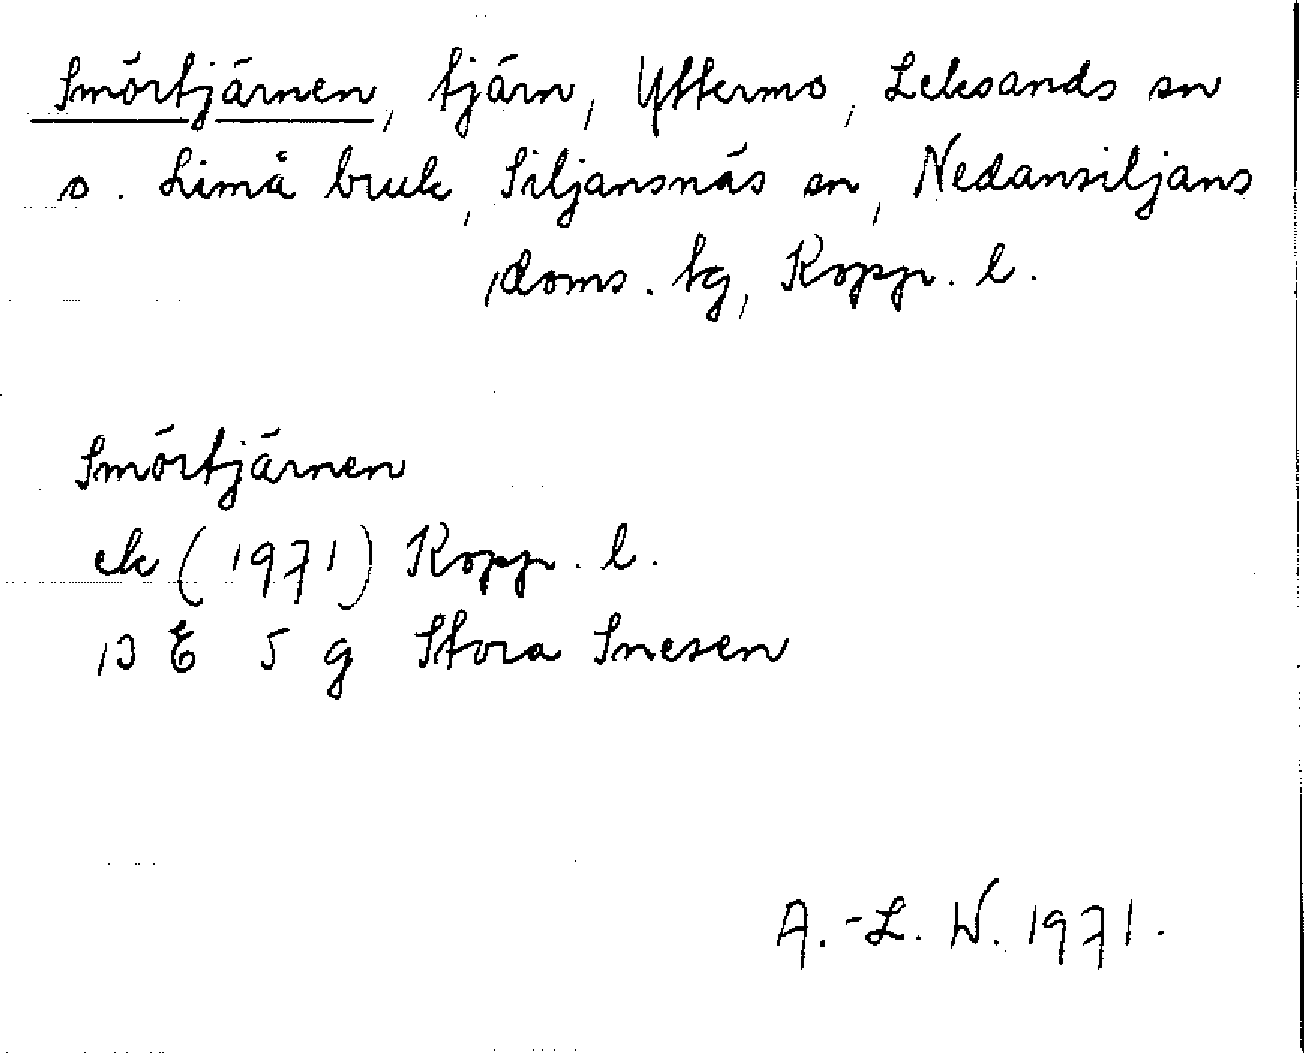 Smörtjärnen, tjärn, Yttermo, Leksands sn
o. Limå bruk, Siljansnäs sn, Nedansiljans
doms. tg, Kopp. l.
Smörtjärnen
ek (1971) Kopp. l.
13 E 5 g Stora Snesen
A.-L. W. 1971.